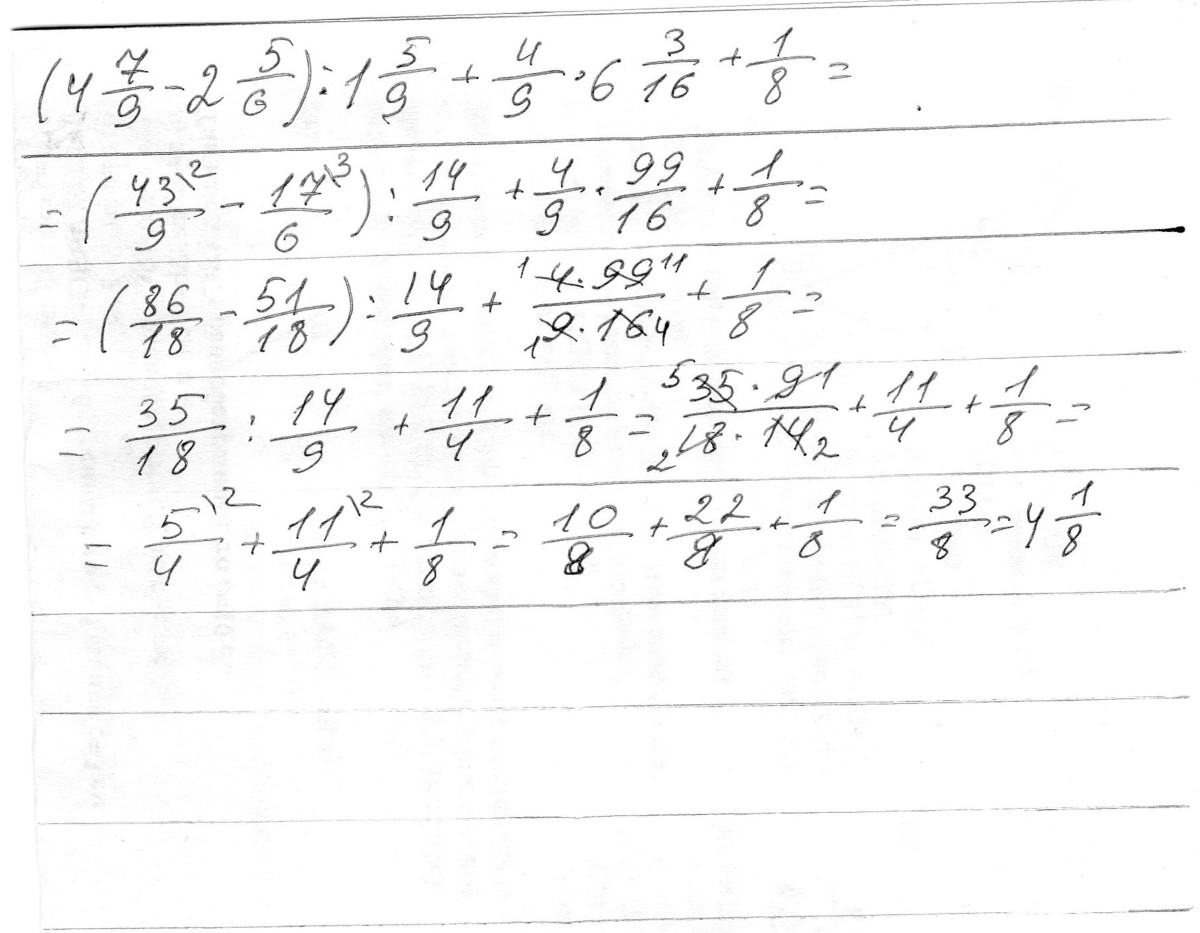 (4 7/9 - 2 5/6) : 1 5/9 + 4/9 · 6 3/16 + 1/8 =
= (43\2/9 - 17\3/6) : 14/9 + 4/9 · 99/16 + 1/8 =
= (86/18 - 51/18) : 14/9 + 1 4 · 99 11/1 9 · 16 4 + 1/8 =
= 35/18 : 14/9 + 11/4 + 1/8 = 5 35 · 9 1/2 18 · 14 2 + 11/4 + 1/8 =
= 5\2/4 + 11\2/4 + 1/8 = 10/8 + 22/8 + 1/8 = 33/8 = 4 1/8